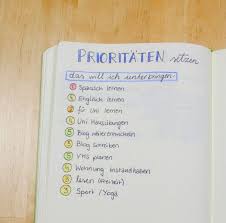 PRIORITÄTEN setzen
das will ich unterbringen:
1 Spanisch lernen
1 Englisch lernen
2 für Uni lernen
4 Uni Hausübungen
5 Blog weiterentwickeln
3 Blog schreiben
5 VHS planen
4 Wohnung instandhalten
3 lesen (Freizeit)
3 Sport / Yoga